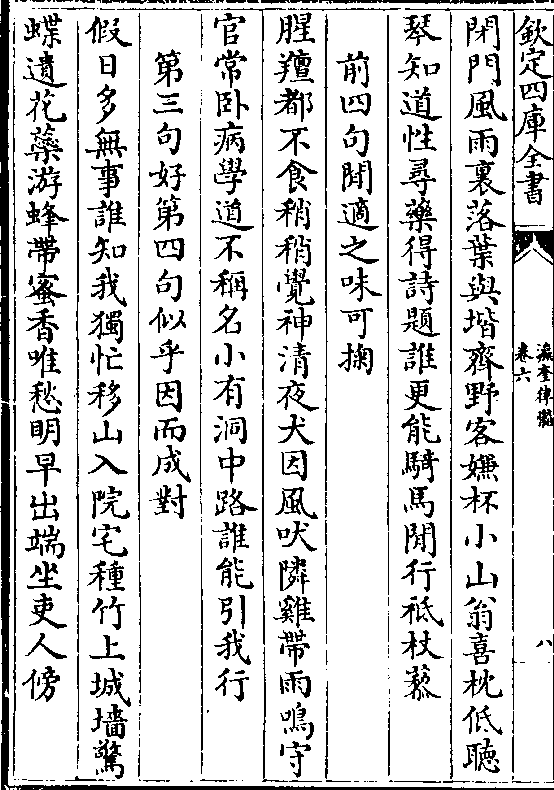 欽定四庫全書
瀛奎律髓
卷六
八
閉門風雨裏落葉與堦齊野客嫌杯小山翁喜枕低聽
琴知道性尋藥得詩題誰更能騎馬閒行袛杖藜
前四句閒適之味可掬
腥羶都不食稍稍覺神清夜犬因風吠隣雞帶雨鳴守
官常卧病學道不稱名小有洞中路誰能引我行
第三句好第四句似乎因而成對
假日多無事誰知我獨忙移山入院宅種竹上城墻驚
蝶遺花蘂游蜂帶蜜香唯愁明早出端坐吏人傍